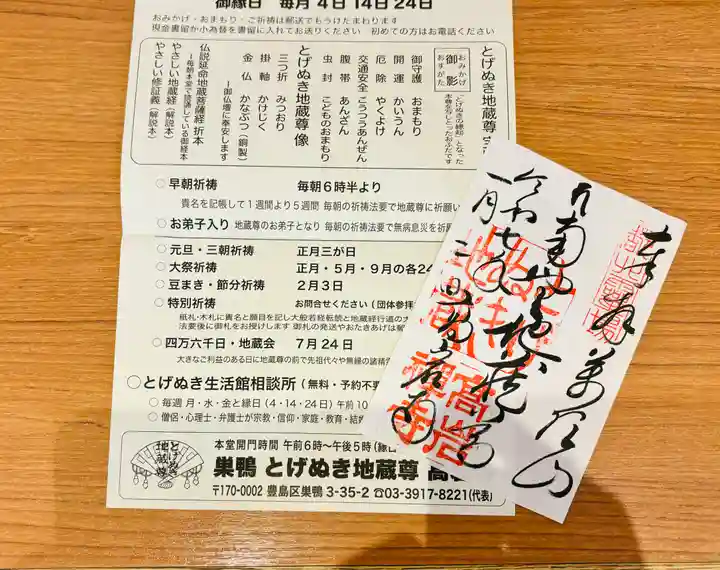 御縁日 毎月 4日 14日 24日
おみかげ・おまもり・ご祈祷は郵送でもうけたまわります
現金書留か小為替を書留に入れてお送りください 初めての方はお電話ください
とげぬき地蔵尊
おみかげ
御影
おすがた
「とげぬきの縁起」となった
本尊をうつしとったおふだです
御守護 おまもり
開運 かいうん
厄除 やくよけ
交通安全 こうつうあんぜん
腹帯 あんざん
虫封 こどものおまもり
とげぬき地蔵尊像
三つ折 みつおり
掛軸 かけじく
金仏 かなぶつ(銅製)
―御仏壇に奉安します
仏説延命地蔵菩薩経折本
―毎朝本堂で読誦している御経本
やさしい地蔵経(解説本)
やさしい修証義(解説本)
○早朝祈祷 毎朝6時半より
貴名を記帳して1週間より5週間 毎朝の祈祷法要で地蔵尊に祈願い
○お弟子入り 地蔵尊のお弟子となり 毎朝の祈祷法要で無病息災を祈願
○元旦・三朝祈祷 正月三が日
○大祭祈祷 正月・5月・9月の各24
○豆まき・節分祈祷 2月3日
○特別祈祷 お問合せください(団体参拝
紙札・木札に貴名と願目を記し大般若経転読と地蔵経行道の大
法要後に御札をお授けします 御札の発送やおたきあげは
○四万六千日・地蔵会 7月24日
大きなご利益のある日に地蔵尊の前で先祖代々や無縁の諸精
○とげぬき生活館相談所(無料・予約不要
○毎週 月・水・金と縁日(4・14・24日)午前10
○僧侶・心理士・弁護士が宗教・信仰・家庭・教育・結婚
とげぬき
地蔵尊
本堂開門時間 午前6時~午後5時(縁日
巣鴨 とげぬき地蔵尊 高
〒170-0002 豊島区巣鴨3-35-2 ☎03-3917-8221(代表)
奉拝 萬頂山
高岩